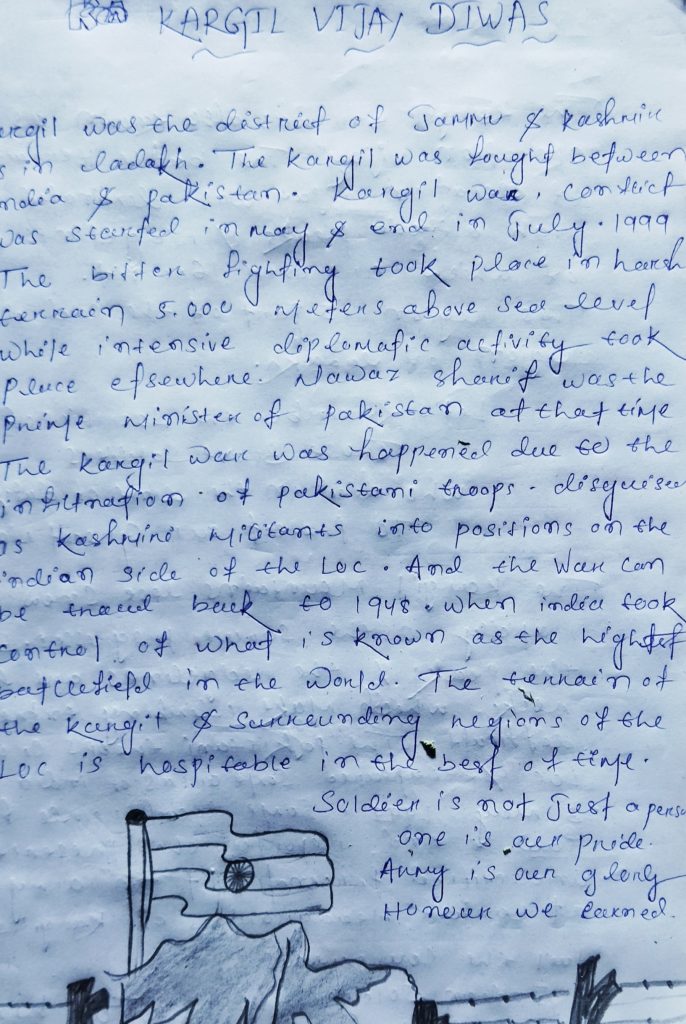 KARGIL VIJAY DIWAS
argil was the district of Jammu & Kashmir
s in ladakh. The kargil was fought between
ndia & pakistan. Kargil war. conflict
was started in may & end in July. 1999
The bitter fighting took place in harsh
terrain 5.000 Meters above sea level
while intensive diplomatic activity took
place elsewhere. Nawaz sharif was the
prime minister of pakistan at that time
The kargil war was happened due to the
infiltration of pakistani troops. disguised
as kashmiri militants into positions on the
indian side of the Loc. And the War can
be traced back to 1948. when india took
control of what is known as the highest
battlefield in the world. The terrain of
the kargil & surrounding regions of the
LOC is hospitable in the best of time.
Soldier is not Just a person
one is our pride.
Army is our glory
Honour we earned.